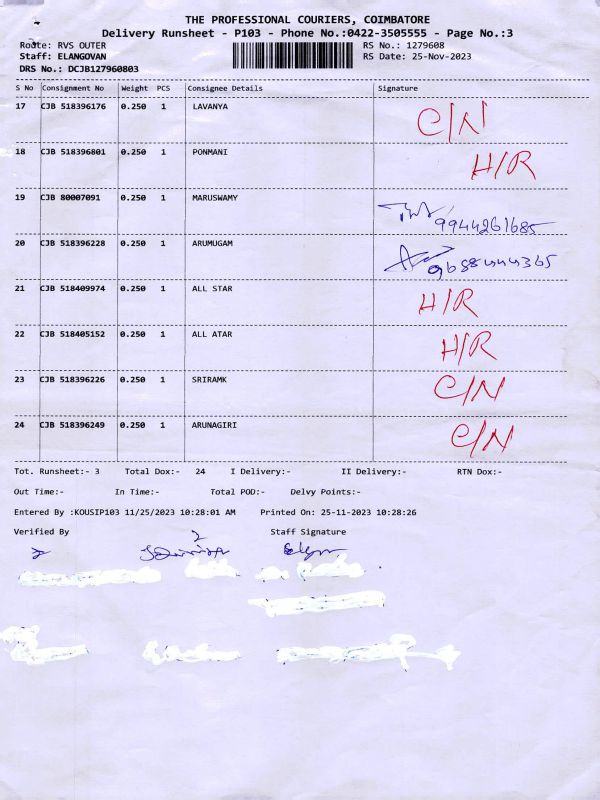 THE PROFESSIONAL COURIERS, COIMBATORE
Delivery Runsheet - P103 - Phone No.:0422-3505555 - Page No.:3
Route: RVS OUTER RS No.: 1279608
Staff: ELANGOVAN RS Date: 25-Nov-2023
DRS No.: DCJB127960803
S No Consignment No Weight PCS Consignee Details Signature
17 CJB 518396176 0.250 1 LAVANYA C/N
18 CJB 518396801 0.250 1 PONMANI H/R
19 CJB 80007091 0.250 1 MARUSWAMY 9944261685
20 CJB 518396228 0.250 1 ARUMUGAM
21 CJB 518409974 0.250 1 ALL STAR H/R
22 CJB 518405152 0.250 1 ALL ATAR H/R
23 CJB 518396226 0.250 1 SRIRAMK C/N
24 CJB 518396249 0.250 1 ARUNAGIRI C/N
Tot. Runsheet:- 3 Total Dox:- 24 I Delivery:- II Delivery:- RTN Dox:-
Out Time:- In Time:- Total POD:- Delvy Points:-
Entered By :KOUSIP103 11/25/2023 10:28:01 AM Printed On: 25-11-2023 10:28:26
Verified By Staff Signature